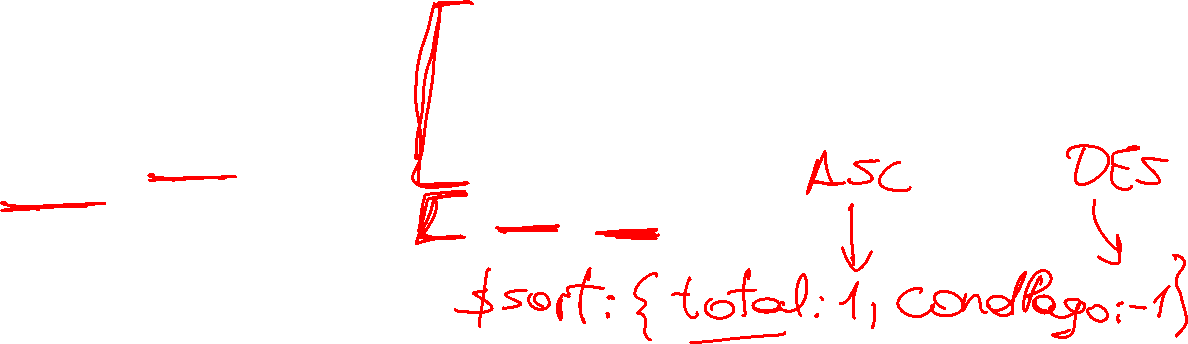 ASC DES
$sort: { total: 1, condPago: -1}